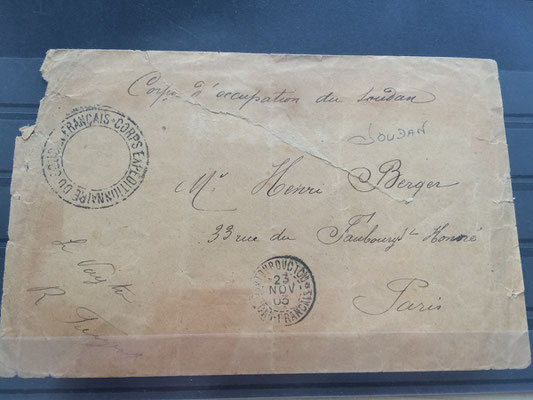 Corps d'occupation du Soudan
SOUDAN
FRANÇAIS · CORPS EXPEDITIONNAIRE DU
Mr Henri Berger
33 rue du Faubourg St Honoré
Paris
TOMBOUCTOU
23
NOV
03
SOUDAN FRANÇAIS